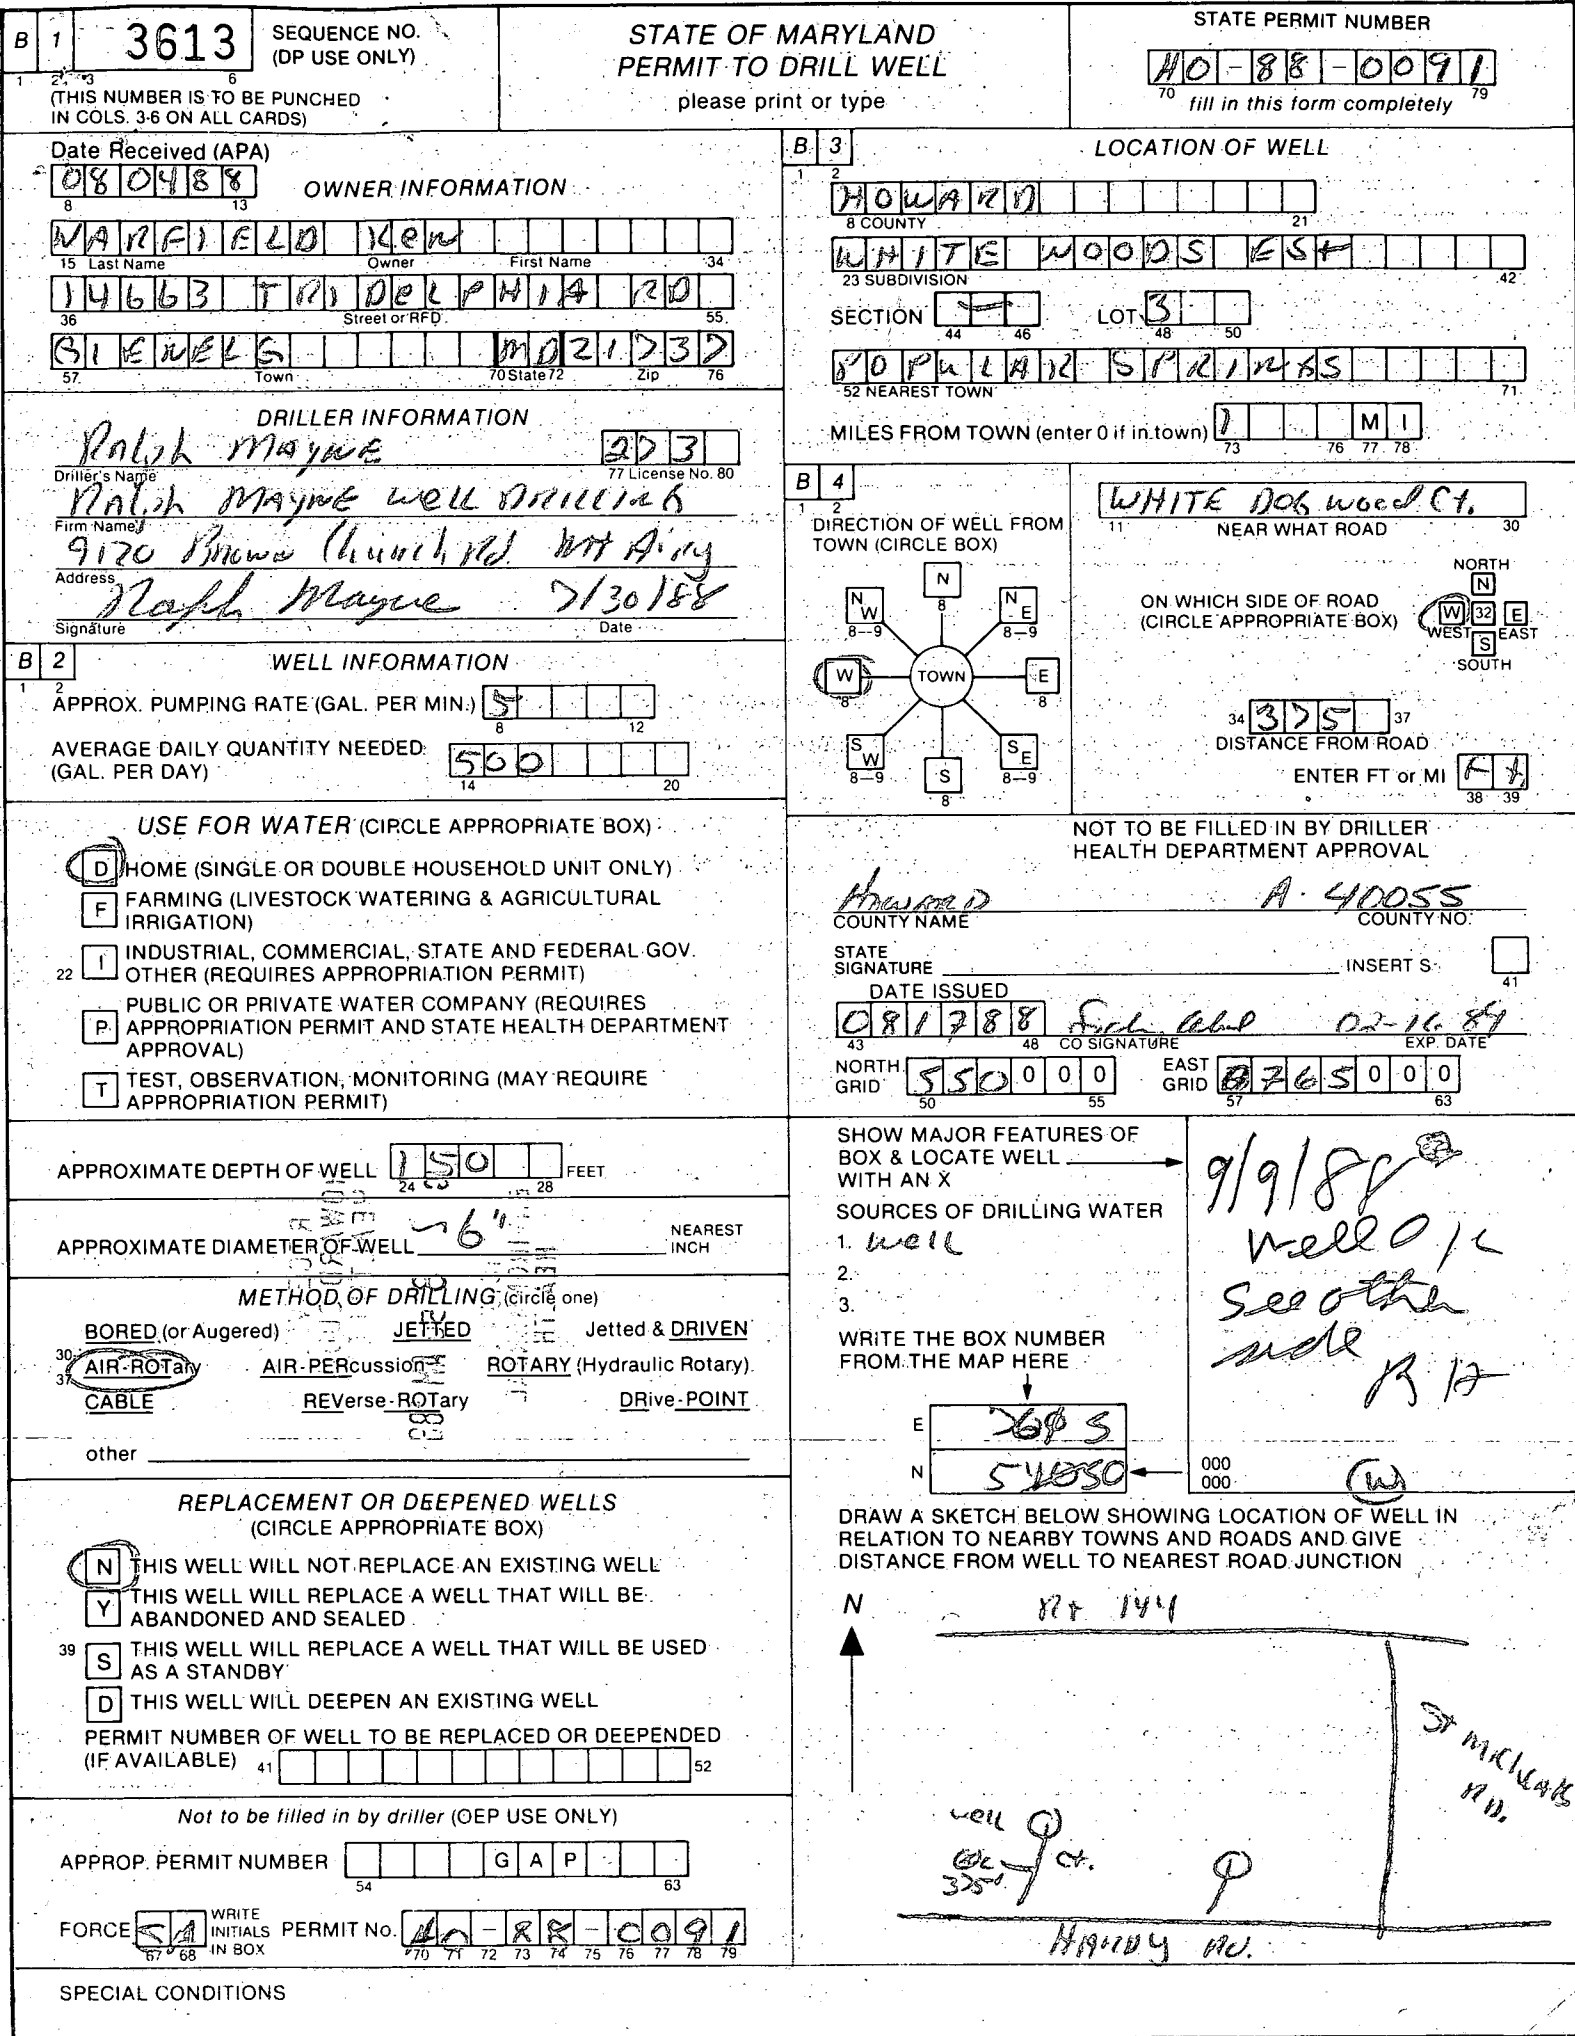 B 1 3613 SEQUENCE NO. (DP USE ONLY)
1 2 3 6
(THIS NUMBER IS TO BE PUNCHED
IN COLS. 3-6 ON ALL CARDS)
STATE OF MARYLAND
PERMIT TO DRILL WELL
please print or type
STATE PERMIT NUMBER
HO-88-0091
70 fill in this form completely 79
Date Received (APA)
080488
8 13
OWNER INFORMATION
WARFIELD Ken
15 Last Name Owner First Name 34
14663 TRIDELPHIA RD
36 Street or RFD 55
GLENELG MD 21737
57 Town 70 State 72 Zip 76
DRILLER INFORMATION
Ralph MAYNE 273
Driller's Name 77 License No. 80
Ralph MAYNE Well DRILLING
Firm Name
9120 Brown Church Rd. Mt Airy
Address
Ralph Mayne 7/30/88
Signature Date
B 2 WELL INFORMATION
1 2
APPROX. PUMPING RATE (GAL. PER MIN.) 5
8 12
AVERAGE DAILY QUANTITY NEEDED
(GAL. PER DAY) 500
14 20
USE FOR WATER (CIRCLE APPROPRIATE BOX)
D HOME (SINGLE OR DOUBLE HOUSEHOLD UNIT ONLY)
F FARMING (LIVESTOCK WATERING & AGRICULTURAL
IRRIGATION)
22 I INDUSTRIAL, COMMERCIAL, STATE AND FEDERAL GOV.
OTHER (REQUIRES APPROPRIATION PERMIT)
P PUBLIC OR PRIVATE WATER COMPANY (REQUIRES
APPROPRIATION PERMIT AND STATE HEALTH DEPARTMENT
APPROVAL)
T TEST, OBSERVATION, MONITORING (MAY REQUIRE
APPROPRIATION PERMIT)
APPROXIMATE DEPTH OF WELL 150 FEET
24 28
APPROXIMATE DIAMETER OF WELL 6" NEAREST
INCH
METHOD OF DRILLING (circle one)
BORED (or Augered) JETTED Jetted & DRIVEN
30 AIR-ROTary AIR-PERcussion ROTARY (Hydraulic Rotary)
37
CABLE REVerse-ROTary DRive-POINT
other
REPLACEMENT OR DEEPENED WELLS
(CIRCLE APPROPRIATE BOX)
N THIS WELL WILL NOT REPLACE AN EXISTING WELL
Y THIS WELL WILL REPLACE A WELL THAT WILL BE
ABANDONED AND SEALED
39 S THIS WELL WILL REPLACE A WELL THAT WILL BE USED
AS A STANDBY
D THIS WELL WILL DEEPEN AN EXISTING WELL
PERMIT NUMBER OF WELL TO BE REPLACED OR DEEPENDED
(IF AVAILABLE) 41 52
Not to be filled in by driller (OEP USE ONLY)
APPROP. PERMIT NUMBER GAP
54 63
FORCE SA WRITE INITIALS IN BOX PERMIT No. HO-88-0091
67 68 70 71 72 73 74 75 76 77 78 79
SPECIAL CONDITIONS
B 3 LOCATION OF WELL
1 2
HOWARD
8 COUNTY 21
WHITE WOODS EST
23 SUBDIVISION 42
SECTION LOT 3
44 46 48 50
POPULAR SPRINGS
52 NEAREST TOWN 71
MILES FROM TOWN (enter 0 if in town) 1 MI
73 76 77 78
B 4
1 2
DIRECTION OF WELL FROM
TOWN (CIRCLE BOX)
N
8
NW NE
8-9 8-9
W TOWN E
8 8
SW SE
8-9 8-9
S
8
WHITE DOGwood Ct.
11 NEAR WHAT ROAD 30
ON WHICH SIDE OF ROAD
(CIRCLE APPROPRIATE BOX)
NORTH
N
W 32 E
WEST EAST
S
SOUTH
34 375 37
DISTANCE FROM ROAD
ENTER FT or MI Ft
38 39
NOT TO BE FILLED IN BY DRILLER
HEALTH DEPARTMENT APPROVAL
HOWARD A-40055
COUNTY NAME COUNTY NO.
STATE
SIGNATURE INSERT S
41
DATE ISSUED
081788 02-16-89
43 48 CO SIGNATURE EXP. DATE
NORTH
GRID 550000
50 55
EAST
GRID 0765000
57 63
SHOW MAJOR FEATURES OF
BOX & LOCATE WELL
WITH AN X
SOURCES OF DRILLING WATER
1. well
2.
3.
WRITE THE BOX NUMBER
FROM THE MAP HERE
E 765
N 550
000
000
9/9/88
Well OK
See other
side
BH
W
DRAW A SKETCH BELOW SHOWING LOCATION OF WELL IN
RELATION TO NEARBY TOWNS AND ROADS AND GIVE
DISTANCE FROM WELL TO NEAREST ROAD JUNCTION
N
Rt 144
St Michaels
RD.
well
375'
Ct.
HARDY RD.